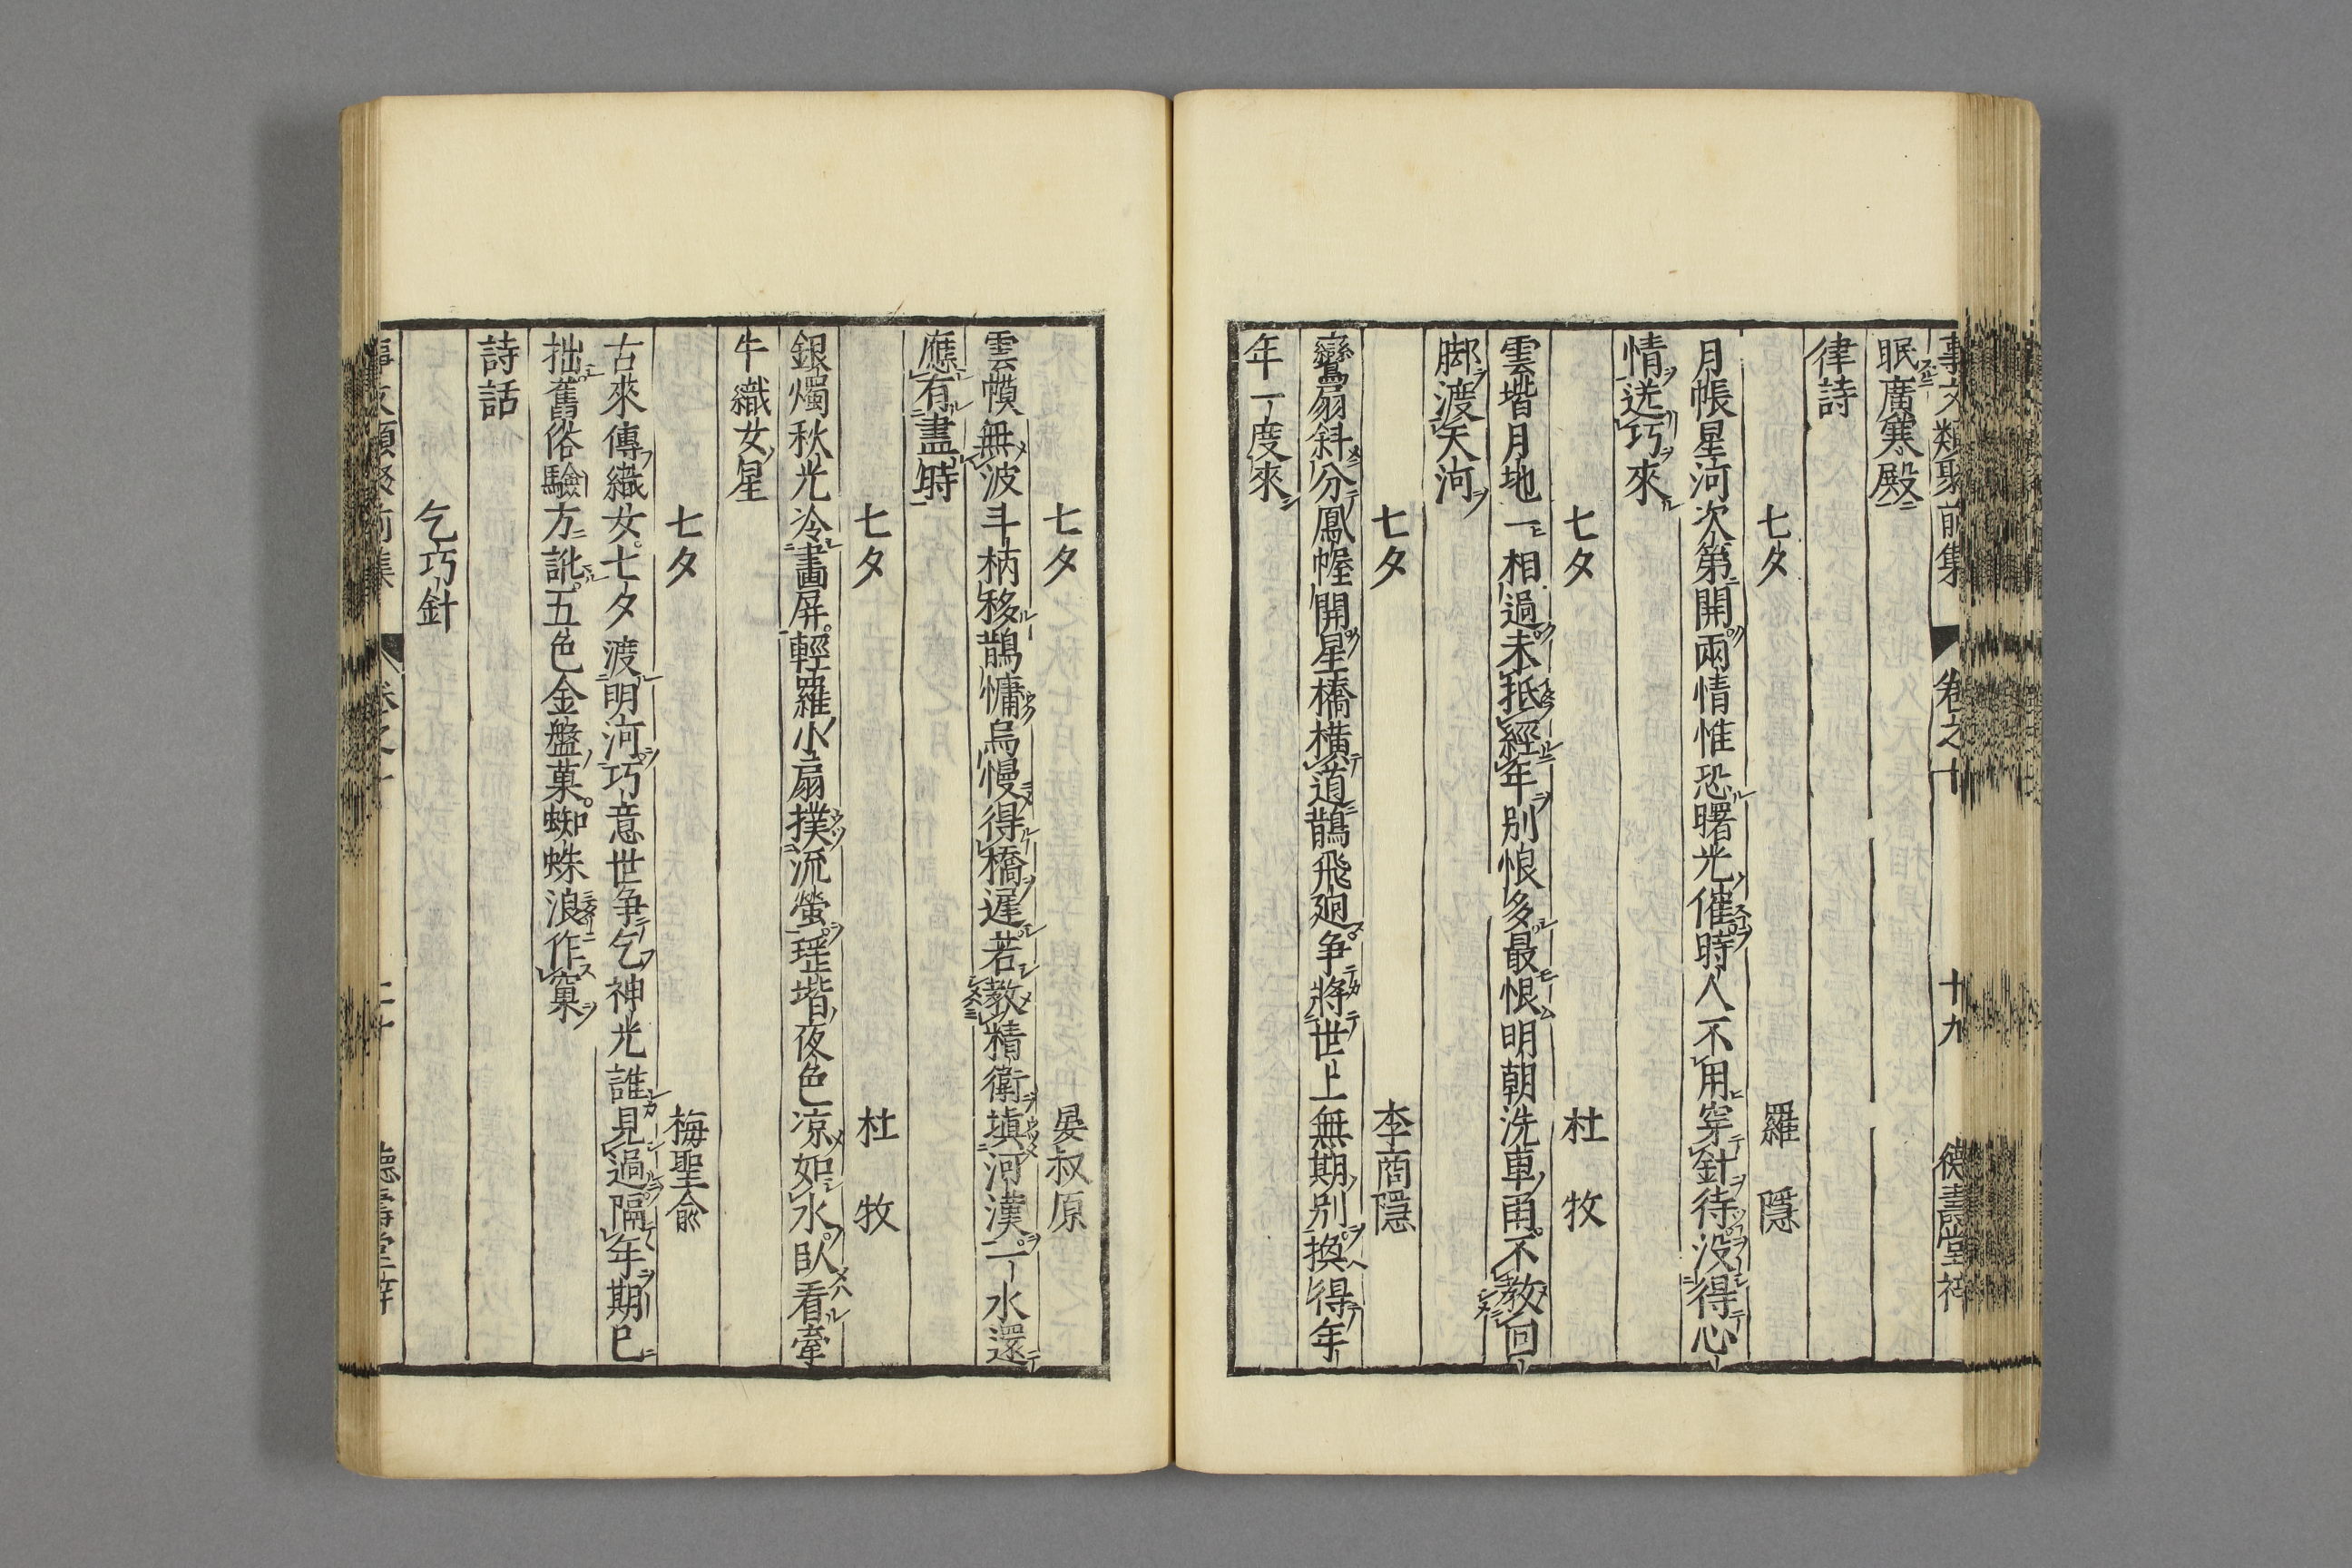 事文類聚前集 卷之十 十九 德壽堂梓
眠廣寒殿
律詩
七夕 羅隱
月帳星河次第開兩情惟恐曙光催時人不用穿針待没得心
情送巧來
七夕 杜牧
雲堦月地一相過未抵經年别恨多最恨明朝洗車雨不教回
脚渡天河
七夕 李商隱
鸞扇斜分鳳幄開星橋橫道鵲飛廻争將世上無期别換得年
年一度來
七夕 晏叔原
雲幙無波斗柄移鵲慵烏慢得橋遲若教精衛塡河漢一水還
應有盡時
七夕 杜牧
銀燭秋光冷畫屏輕羅小扇撲流螢瑶堦夜色凉如水臥看牽
牛織女星
七夕 梅聖俞
古來傳織女七夕渡明河巧意世争乞神光誰見過隔年期已
拙舊俗驗方訛五色金盤菓蜘蛛浪作窠
詩話
乞巧針
事文類聚前集 卷之十 二十 德壽堂梓